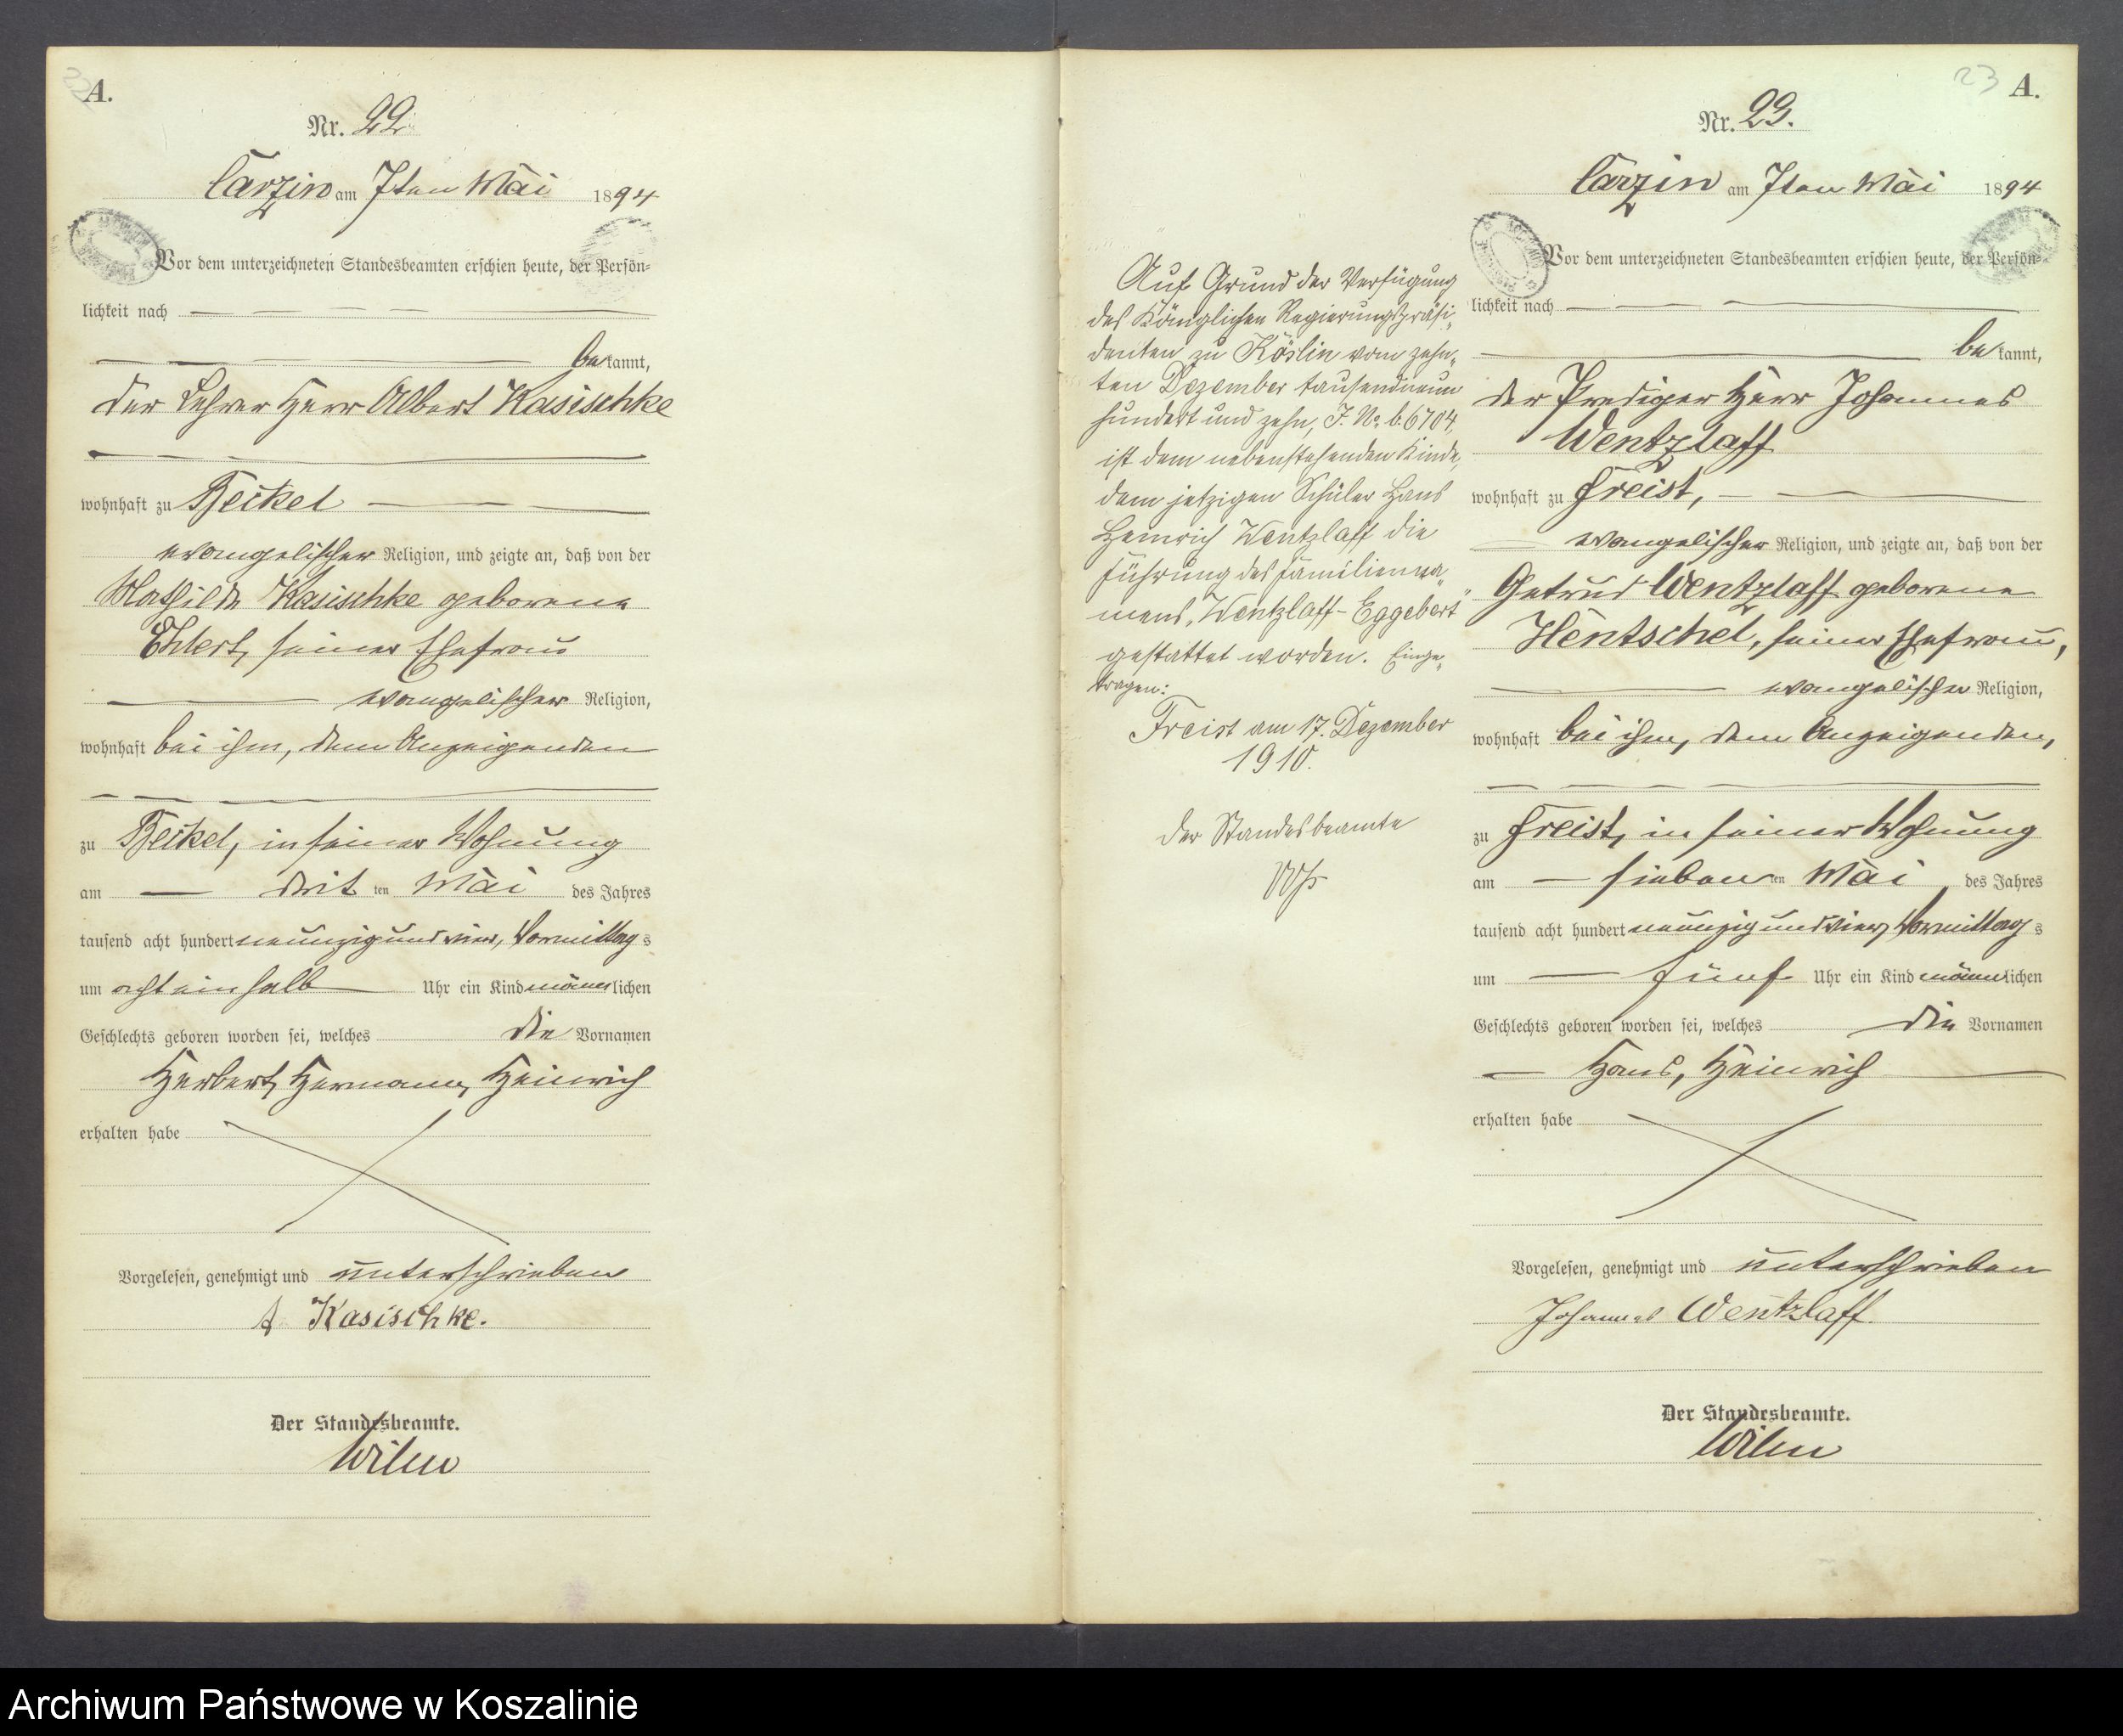 22
A.
Nr. 22.
Carzin am 7ten Mai 1894
Vor dem unterzeichneten Standesbeamten erschien heute, der Persön-
lichkeit nach
bekannt,
der Lehrer Herr Albert Kasischke
wohnhaft zu Beckel
evangelischer Religion, und zeigte an, daß von der
Mathilde Kasischke geborene
Ehlert, seiner Ehefrau
evangelischer Religion,
wohnhaft bei ihm, dem Anzeigenden
zu Beckel, in seiner Wohnung
am dritten Mai des Jahres
tausend acht hundert neunzig und vier, Vormittags
um acht ein halb Uhr ein Kind männlichen
Geschlechts geboren worden sei, welches die Vornamen
Herbert, Hermann, Heinrich
erhalten habe
Vorgelesen, genehmigt und unterschrieben
A Kasischke.
Der Standesbeamte.
Wilm
Auf Grund der Verfügung
des Königlichen Regierungspräsi-
denten zu Köslin vom zehn-
ten Dezember tausendneun
hundert und zehn, J. No. b. 6704,
ist dem nebenstehenden Kinde,
dem jetzigen Schüler Hans
Heinrich Wentzlaff die
Führung des Familienna-
mens „Wentzlaff-Eggebert"
gestattet worden. Einge-
tragen:
Freist am 17. Dezember
1910.
Der Standesbeamte
23
A.
Nr. 23.
Carzin am 7ten Mai 1894
Vor dem unterzeichneten Standesbeamten erschien heute, der Persön-
lichkeit nach
bekannt,
der Prediger Herr Johannes
Wentzlaff
wohnhaft zu Freist,
evangelischer Religion, und zeigte an, daß von der
Getrud Wentzlaff geborene
Hentschel, seiner Ehefrau,
evangelischer Religion,
wohnhaft bei ihm, dem Anzeigenden,
zu Freist, in seiner Wohnung
am siebenten Mai des Jahres
tausend acht hundert neunzig und vier, Vormittags
um fünf Uhr ein Kind männlichen
Geschlechts geboren worden sei, welches die Vornamen
Hans, Heinrich
erhalten habe
Vorgelesen, genehmigt und unterschrieben
Johannes Wentzlaff.
Der Standesbeamte.
Wilm
Archiwum Państwowe w Koszalinie